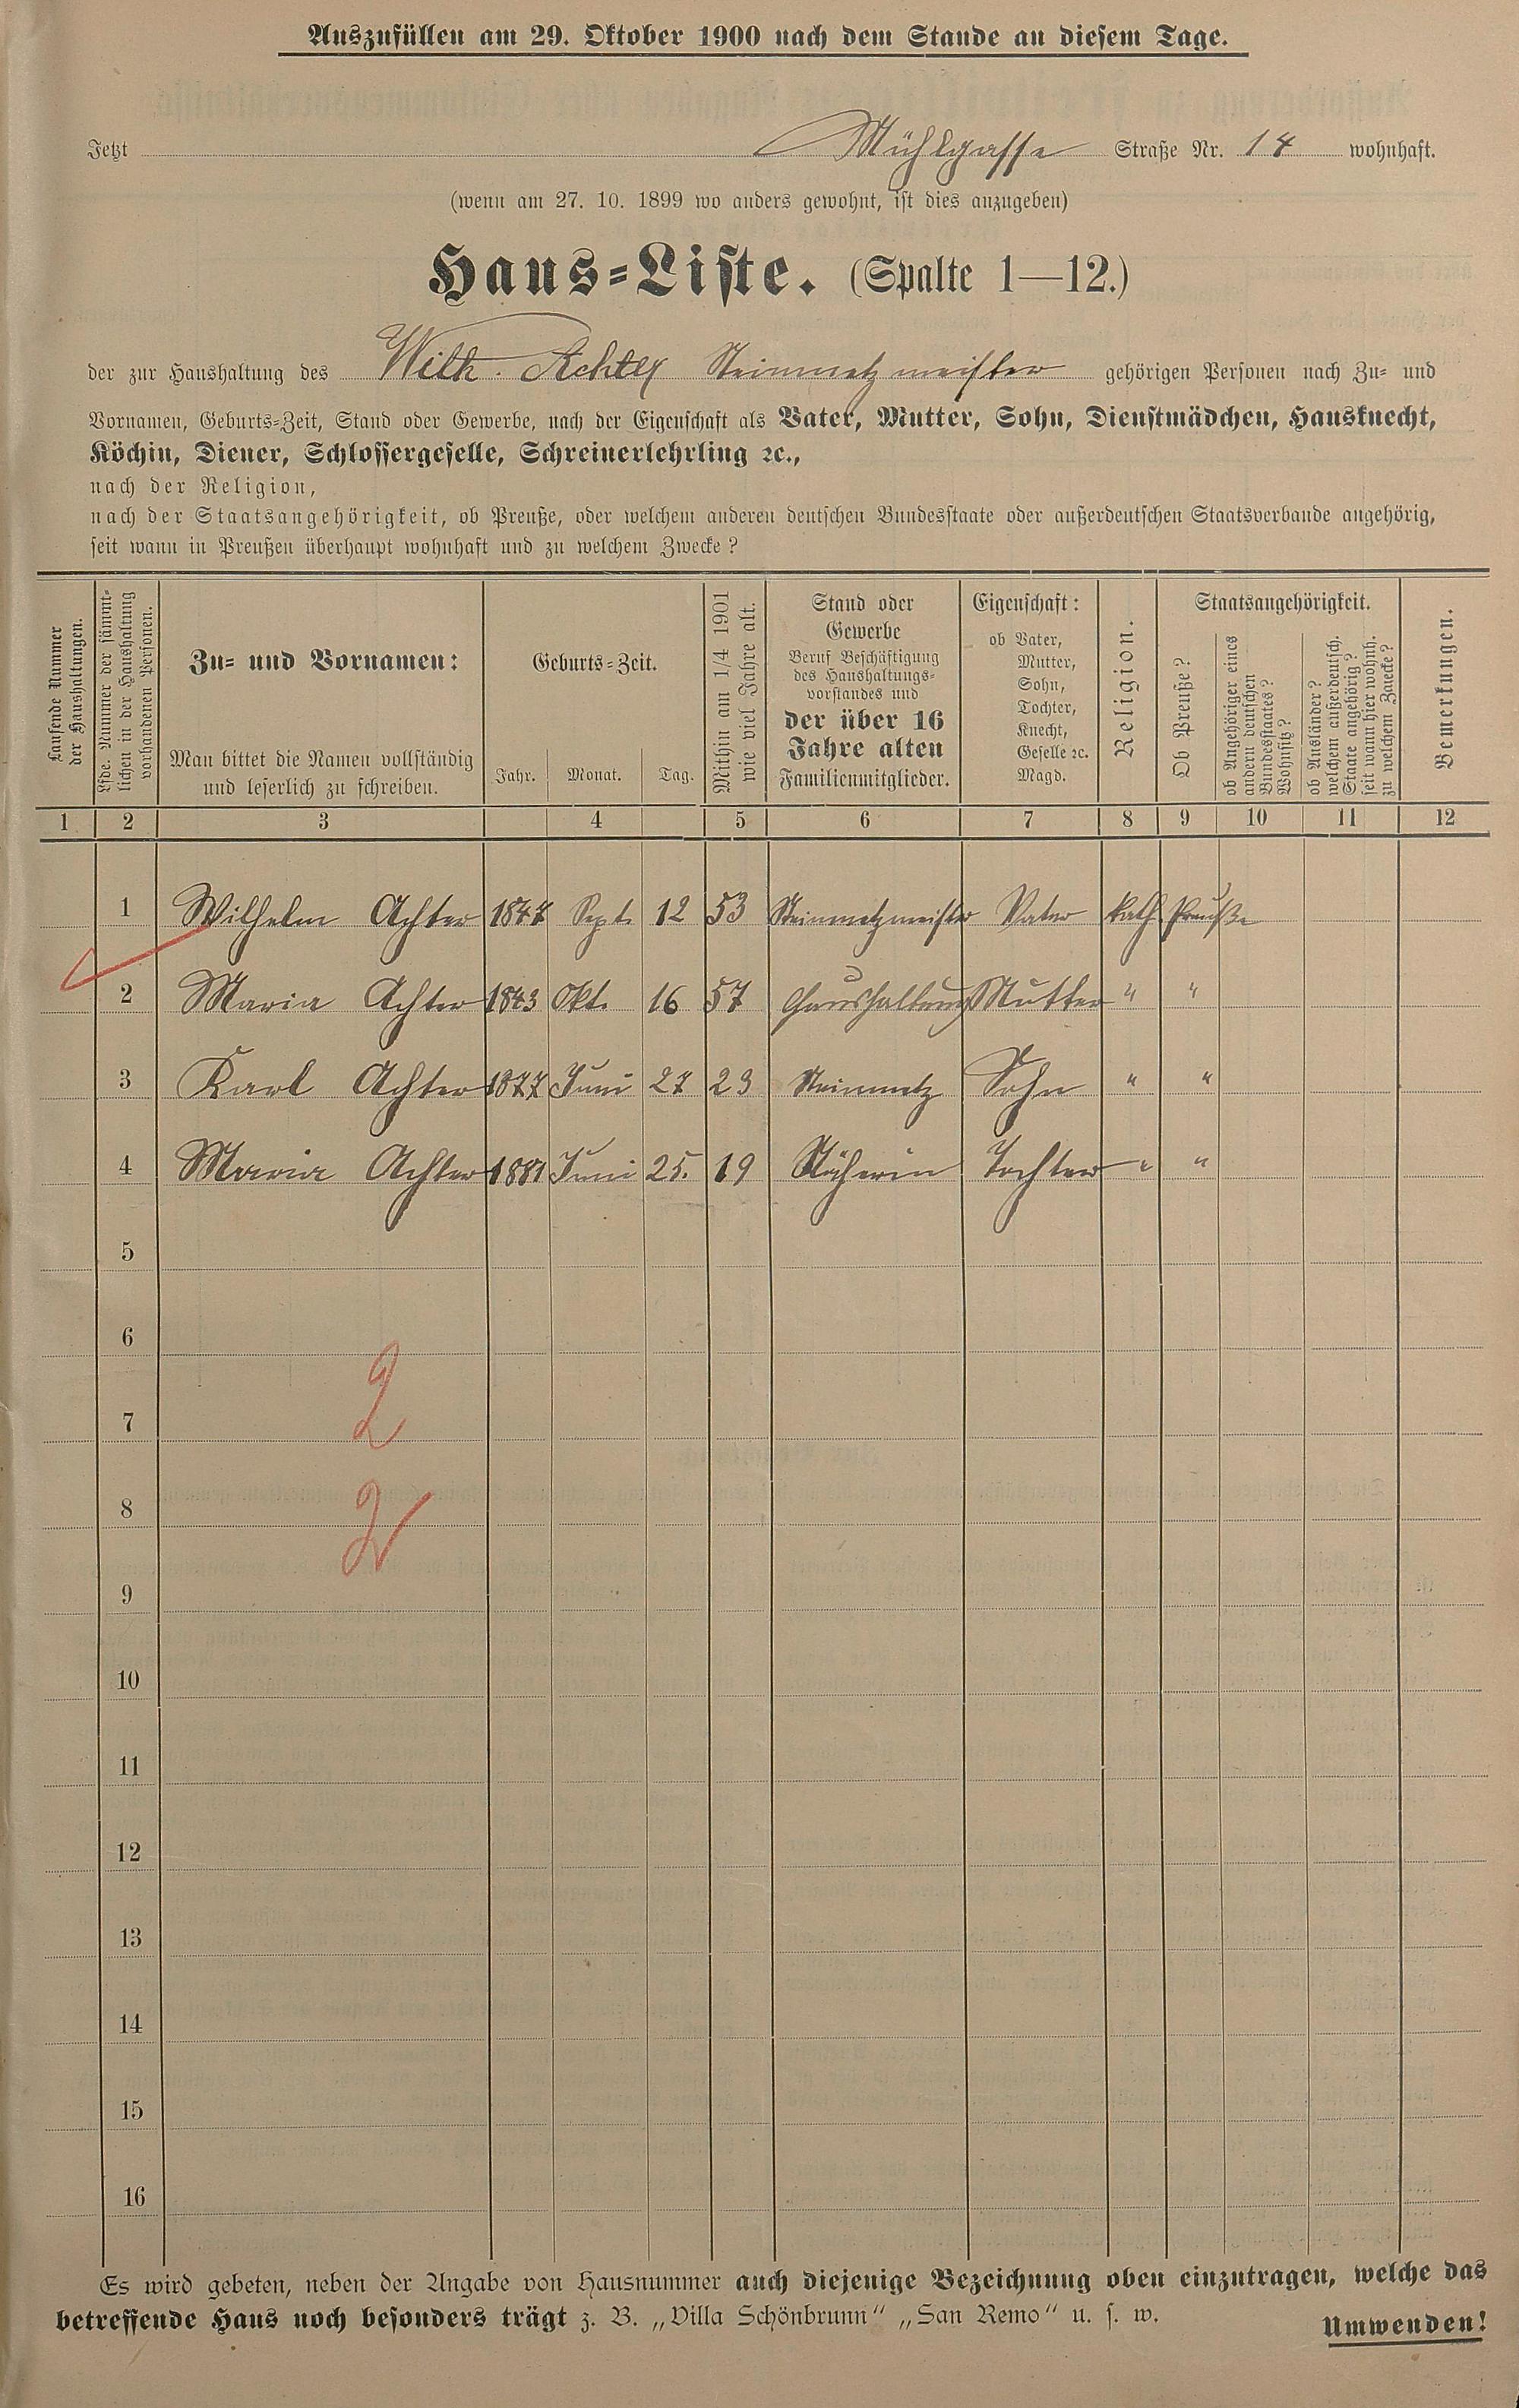 Auszufüllen am 29. Oktober 1900 nach dem Stande an diesem Tage.
Jetzt Mühlgasse Straße Nr. 14 wohnhaft.
(wenn am 27. 10. 1899 wo anders gewohnt, ist dies anzugeben)
Haus-Liste. (Spalte 1—12.)
der zur Haushaltung des Wilh. Achter Steinmetzmeister gehörigen Personen nach Zu- und
Vornamen, Geburts-Zeit, Stand oder Gewerbe, nach der Eigenschaft als Vater, Mutter, Sohn, Dienstmädchen, Hausknecht,
Köchin, Diener, Schlossergeselle, Schreinerlehrling ꝛc.,
nach der Religion,
nach der Staatsangehörigkeit, ob Preuße, oder welchem anderen deutschen Bundesstaate oder außerdeutschen Staatsverbande angehörig,
seit wann in Preußen überhaupt wohnhaft und zu welchem Zwecke?
Laufende Nummer
der Haushaltungen.
Lfde. Nummer der sämmt-
lichen in der Haushaltung
vorhandenen Personen.
Zu- und Vornamen:
Man bittet die Namen vollständig
und leserlich zu schreiben.
Geburts-Zeit.
Jahr. Monat. Tag.
Mithin am 1/4 1901
wie viel Jahre alt.
Stand oder
Gewerbe
Beruf Beschäftigung
des Haushaltungs-
vorstandes und
der über 16
Jahre alten
Familienmitglieder.
Eigenschaft:
ob Vater,
Mutter,
Sohn,
Tochter,
Knecht,
Geselle ꝛc.
Magd.
Religion.
Staatsangehörigkeit.
Ob Preuße?
ob Angehöriger eines
andern deutschen
Bundesstaates?
Wohnsitz?
ob Ausländer?
welchem außerdeutsch.
Staate angehörig?
seit wann hier wohnh.
zu welchem Zwecke?
Bemerkungen.
1 2 3 4 5 6 7 8 9 10 11 12
1 Wilhelm Achter 1847 Sept. 12 53 Steinmetzmeister Vater kath Preuße
2 Maria Achter 1843 Okt. 16 57 Haushaltung Mutter " "
3 Karl Achter 1877 Juni 27 23 Steinmetz Sohn " "
4 Maria Achter 1881 Juni 25. 19 Näherin Tochter " "
5
6
7
8
9
10
11
12
13
14
15
16
2
2
Es wird gebeten, neben der Angabe von Hausnummer auch diejenige Bezeichnung oben einzutragen, welche das
betreffende Haus noch besonders trägt z. B. „Villa Schönbrunn“ „San Remo“ u. s. w.
Umwenden!